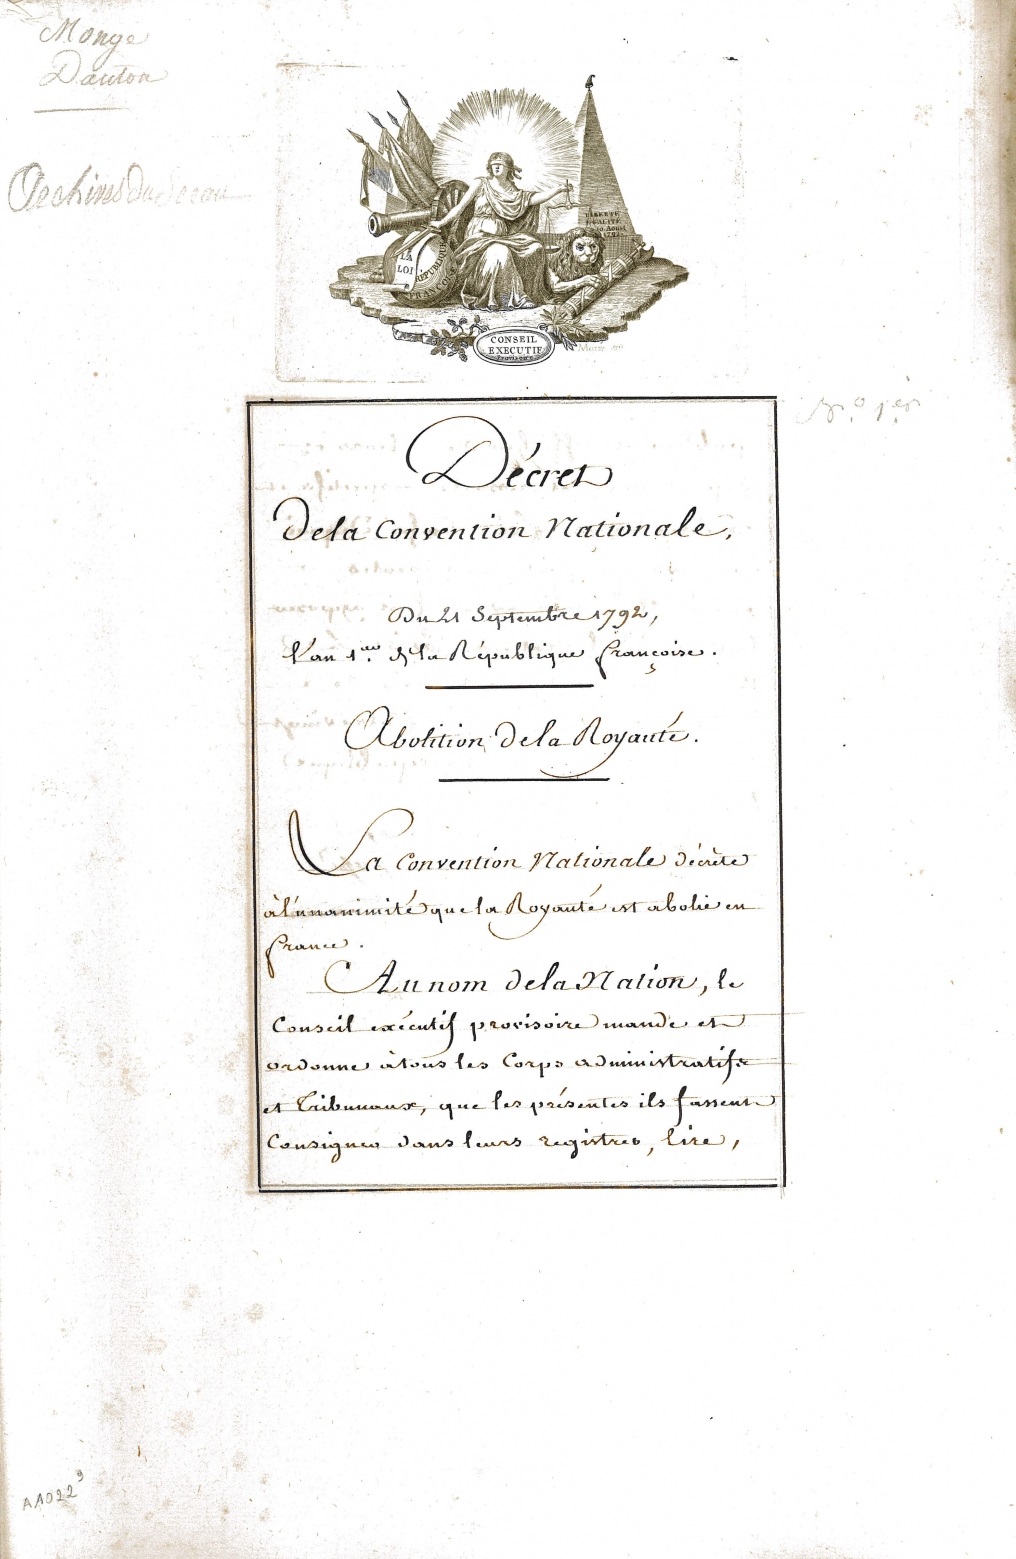 Monge
Danton
LIBERTÉ
EGALITÉ
10 Aoust
1792
LA
LOI
RÉPUBLIQUE
FRANÇOISE
CONSEIL
EXECUTIF
Provisoire
N.º 1.er
Décret
de la Convention Nationale,
Du 21 Septembre 1792,
l'an 1.er de la République françoise.
Abolition de la Royauté.
La Convention Nationale décrète
à l'unanimité que la Royauté est abolie en
france.
Au nom de la Nation, le
Conseil exécutif provisoire mande et
ordonne à tous les Corps administratifs
et Tribunaux, que les présentes ils fassent
Consigner dans leurs registres, lire,
AA022 9